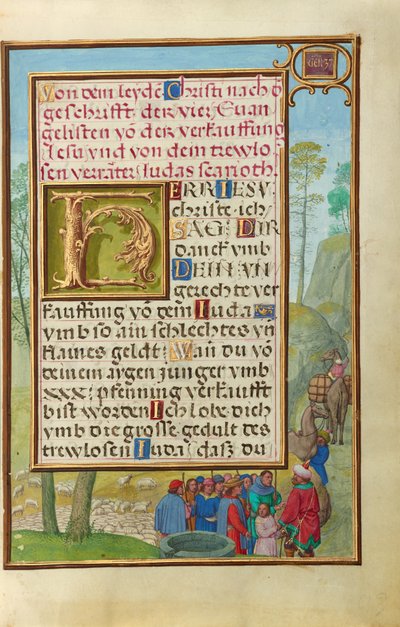 Gen· 37
Von dem leydē Christi nach ō
geschrifft der vier Euan
gelisten vō der verkauffung
Iesu vnd von dem trewlo
sen verräter Iudas scarioth.
HERR IESV
christe ich
SAG DIR
danck vmb
DEIN VN
gerechte ver
kauffung vō dem Iuda
vmb so ain schlechtes vn̄
klaines geldt. Wan du vō
deinem argen junger vmb
XXX pfenning verkaufft
bist worden Ich lobe dich
vmb die grosse gedult des
trewlosen Iuda· dasz du